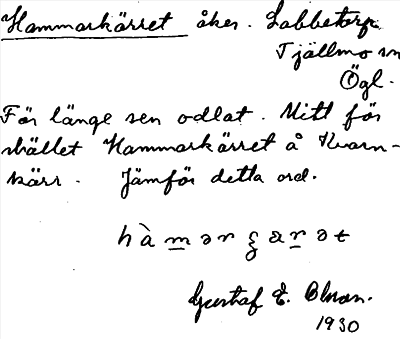 Hammarkärret åker. Labbetorp.
Tjällmo sn
Ögl.
För länge sen odlat. Mitt för
stället Hammarkärret å Kvarn-
kärr. Jämför detta ord.
Gustaf E.
1930